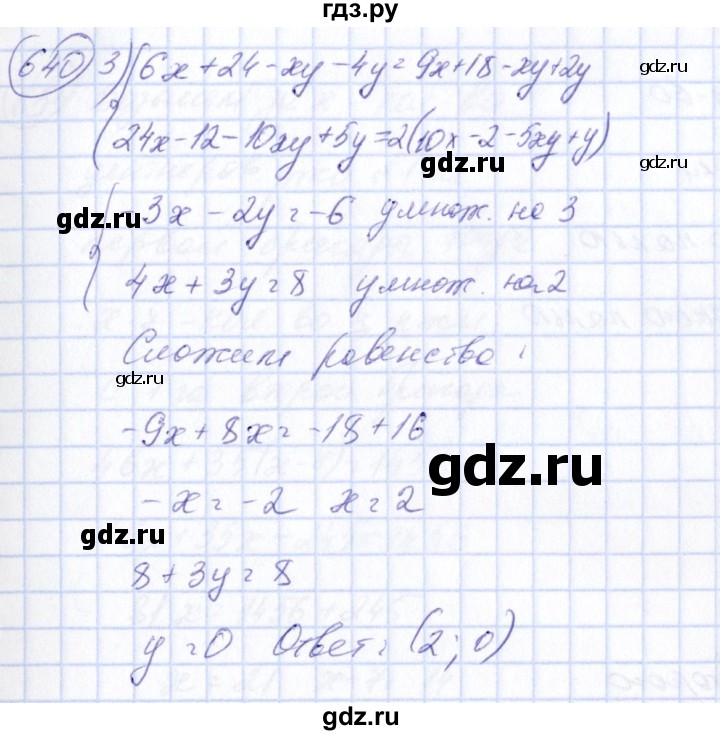 гдз.ру
640 3) { 6x + 24 - xy - 4y = 9x + 18 - xy + 2y
24x - 12 - 10xy + 5y = 2(10x - 2 - 5xy + y)
gdz.ru
gdz.ru
{ -3x - 2y = -6 умнож. на 3
gdz.ru
gdz.ru
4x + 3y = 8 умнож. на 2
Сложим равенства:
-9x + 8x = -18 + 16
gdz.ru
-x = -2 x = 2
gdz.ru
8 + 3y = 8
gdz.ru
y = 0 Ответ: (2; 0)
gdz.ru